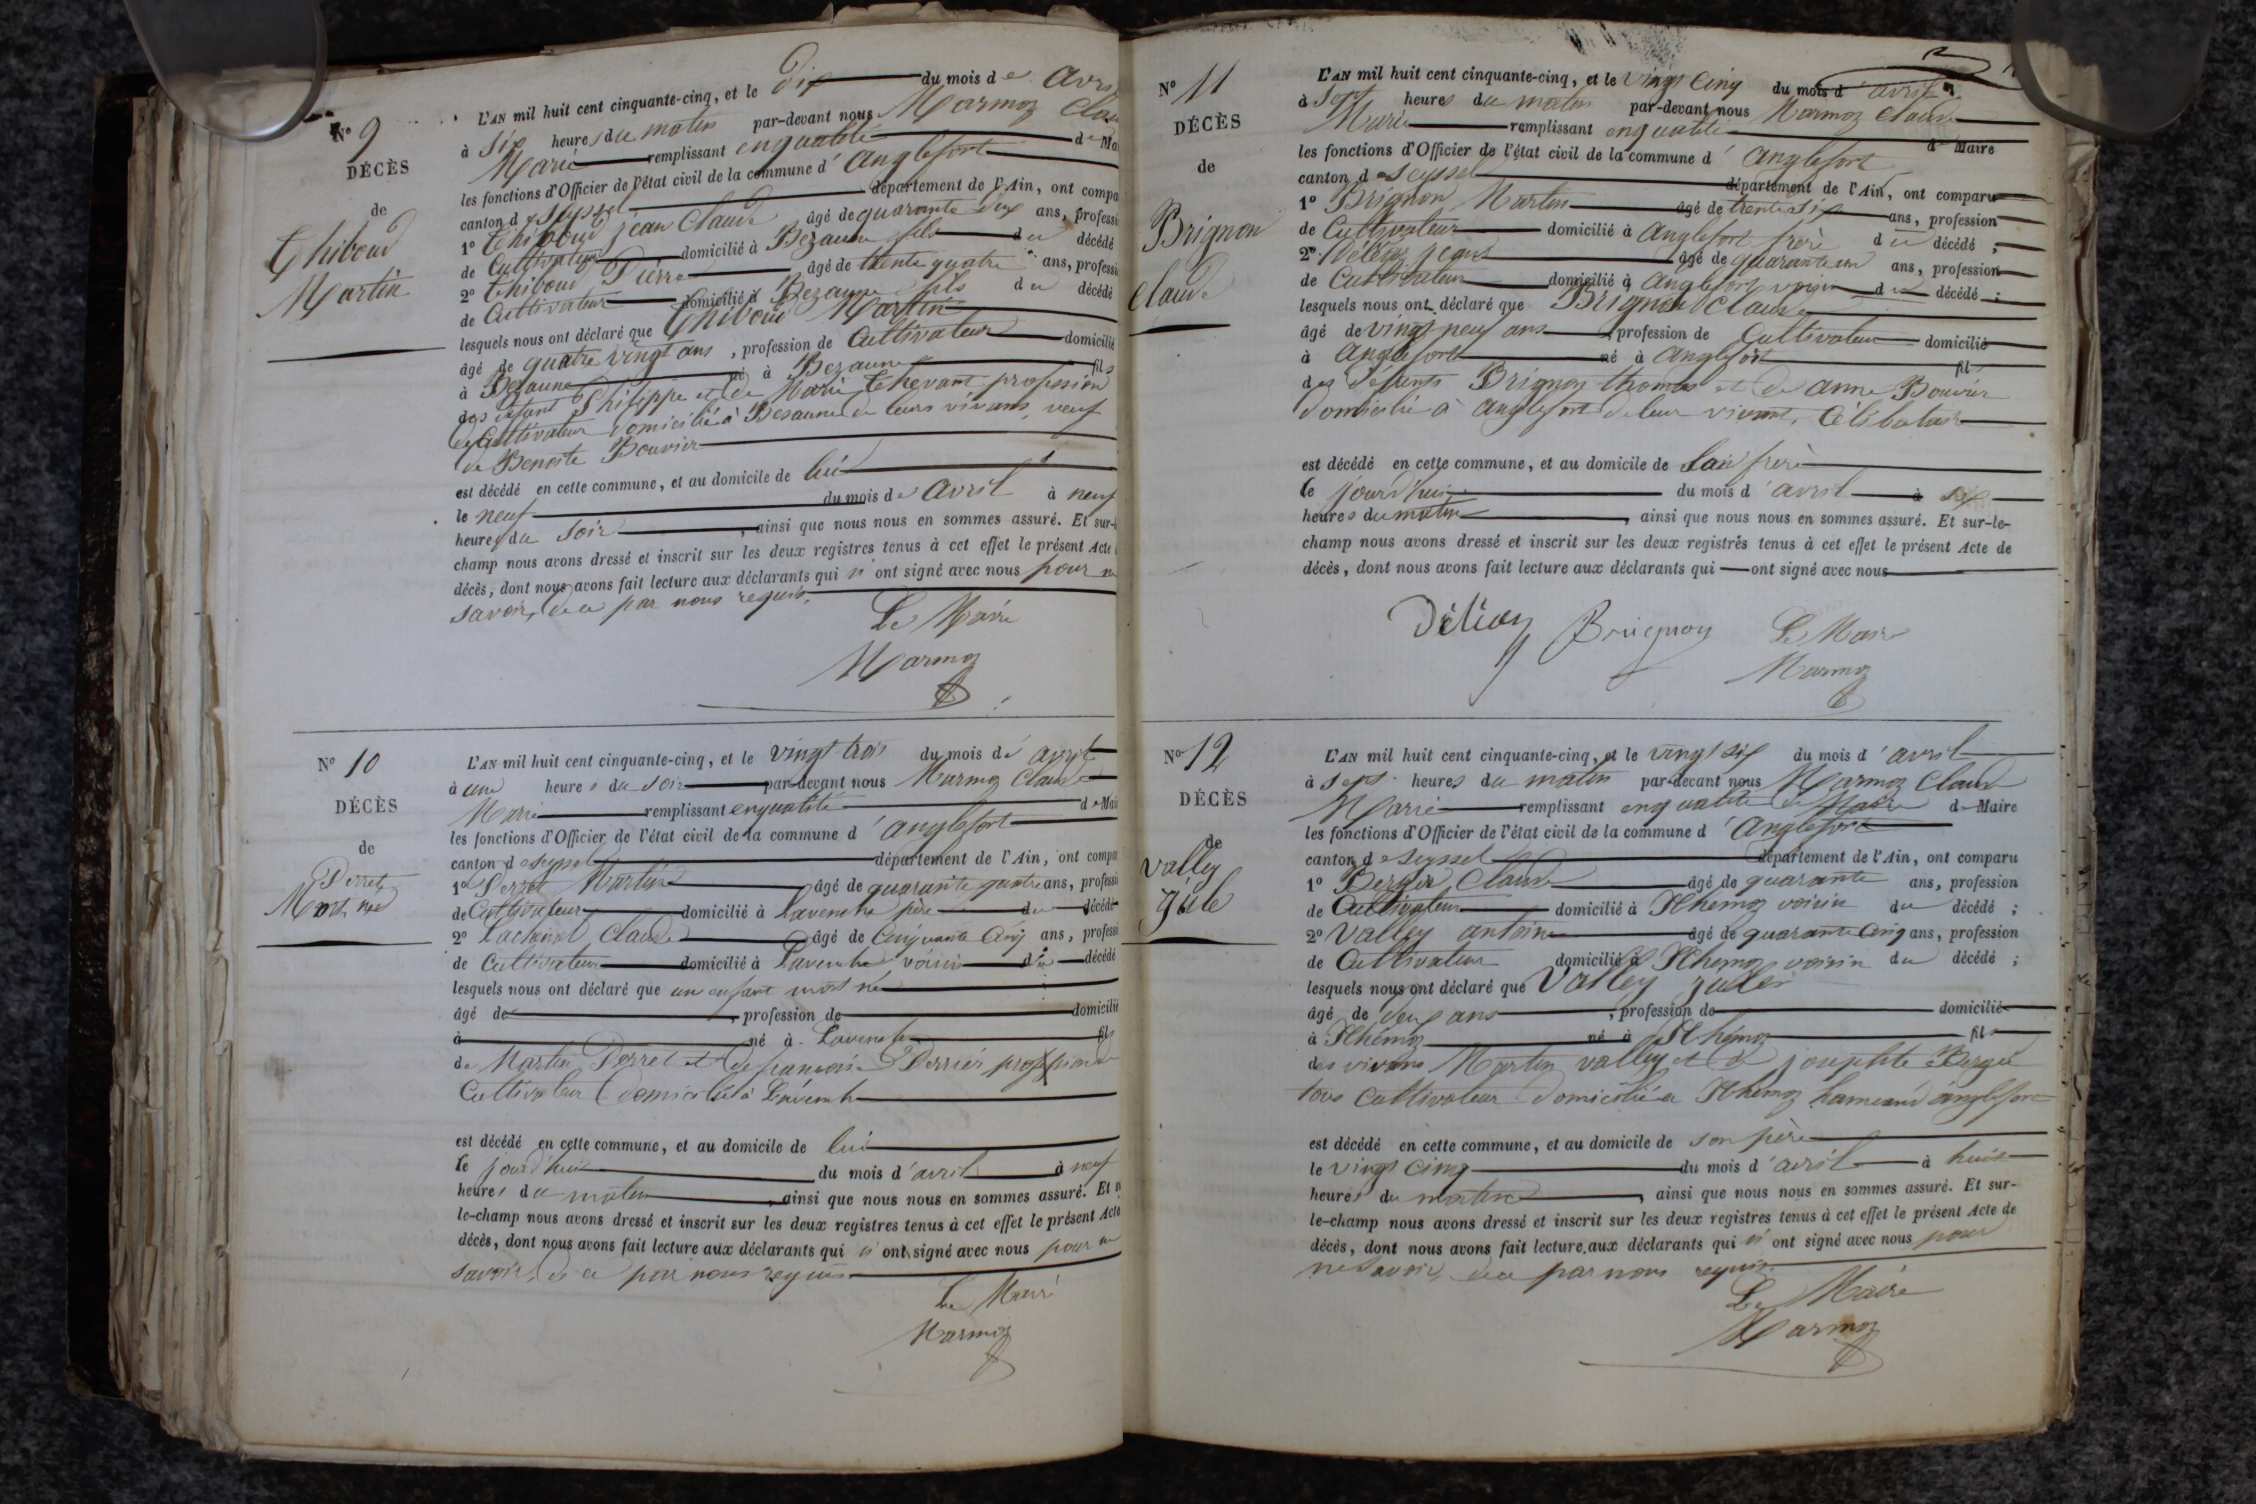 Nº 9
DÉCÈS
de
Thiboud
Martin
L'AN mil huit cent cinquante-cinq, et le dix du mois de Avri
à six heures du matin par-devant nous Marmoz Clau
Marie remplissant en qualité de Ma
les fonctions d'Officier de l'état civil de la commune d'Anglefort
canton de Seyssel département de l'Ain, ont compa
1º Thiboud jean Claude âgé de quarante deux ans, professi
de Cultivateur domicilié à Bezaune fils du décédé
2º Thiboud Pierre âgé de trente quatre ans, professi
de Cultivateur domicilié à Bezaune fils du décédé
lesquels nous ont déclaré que Thiboud Martin
âgé de quatre vingt ans, profession de Cultivateur domicilié
à Bezaune né à Bezaune fils
des défunt Philippe et de Marie Thevant profession
de Cultivateur domicilié à Besaune de leurs vivans, veuf
de Benoite Bouvier
est décédé en cette commune, et au domicile de lui
le neuf du mois de avril à neuf
heures du soir, ainsi que nous nous en sommes assuré. Et sur-l
champ nous avons dressé et inscrit sur les deux registres tenus à cet effet le présent Acte
décès, dont nous avons fait lecture aux déclarants qui n'ont signé avec nous pour n
savoir, de ce par nous requis.
Le Maire
Marmoz
Nº 10
DÉCÈS
de
Perret
Mort né
L'AN mil huit cent cinquante-cinq, et le vingt trois du mois de avril
à une heures du soir par-devant nous Marmoz Claude
Marie remplissant en qualité de Mai
les fonctions d'Officier de l'état civil de la commune d'anglefort
canton de Seyssel département de l'Ain, ont compa
1º Perret Martin âgé de quarante quatre ans, professi
de Cultivateur domicilié à Lavenche père du décédé
2º Claude âgé de Cinquante Cinq ans, professi
de Cultivateur domicilié à Lavenche voisin du décédé
lesquels nous ont déclaré que un enfant mort né
âgé de, profession de domicilié
à né à Lavenche fils
de Martin Perret et de françoise Perrier profession de
Cultivateur domicilié à Lavenche
est décédé en cette commune, et au domicile de lui
le jourd'hui du mois d'avril à neuf
heures du matin, ainsi que nous nous en sommes assuré. Et s
le-champ nous avons dressé et inscrit sur les deux registres tenus à cet effet le présent Acte
décès, dont nous avons fait lecture aux déclarants qui n'ont signé avec nous pour ne
savoir, de ce par nous requis
Le Maire
Marmoz
Nº 11
DÉCÈS
de
Brignon
Claude
L'AN mil huit cent cinquante-cinq, et le vingt Cinq du mois d'avril
à Sept heures du matin par-devant nous Marmoz Claude
Marie remplissant en qualité de Maire
les fonctions d'Officier de l'état civil de la commune d'anglefort
canton de Seyssel département de l'Ain, ont comparu
1º Brignon Martin âgé de trente six ans, profession
de Cultivateur domicilié à Anglefort frère du décédé;
2º jean âgé de quarante un ans, profession
de Cultivateur domicilié à Anglefort voisin du décédé;
lesquels nous ont déclaré que Brignon Claude
âgé de vingt neuf ans, profession de Cultivateur domicilié
à Anglefort né à Anglefort fils
des défunts Brignon thomas et de anne Bouvier
domicilié à Anglefort de leur vivant, Célibataire
est décédé en cette commune, et au domicile de frère
le jourd'hui du mois d'avril à six
heures du matin, ainsi que nous nous en sommes assuré. Et sur-le-
champ nous avons dressé et inscrit sur les deux registres tenus à cet effet le présent Acte de
décès, dont nous avons fait lecture aux déclarants qui ont signé avec nous
Brignon Le Maire
Marmoz
Nº 12
DÉCÈS
de
Valley
Jule
L'AN mil huit cent cinquante-cinq, et le vingt six du mois d'avril
à sept heures du matin par-devant nous Marmoz Claude
Marie remplissant en qualité de Maire de Maire
les fonctions d'Officier de l'état civil de la commune d'Anglefort
canton de Seyssel département de l'Ain, ont comparu
1º Berger Claude âgé de quarante ans, profession
de Cultivateur domicilié à voisin du décédé;
2º Valley antoine âgé de quarante Cinq ans, profession
de Cultivateur domicilié à voisin du décédé;
lesquels nous ont déclaré que Valley Jules
âgé de deux ans, profession de domicilié
à né à fils
des vivans Martin Valley et de josephte Berger
tous Cultivateur domicilié à hameau d'anglefort
est décédé en cette commune, et au domicile de son père
le vingt Cinq du mois d'avril à huit
heures du matin, ainsi que nous nous en sommes assuré. Et sur-
le-champ nous avons dressé et inscrit sur les deux registres tenus à cet effet le présent Acte de
décès, dont nous avons fait lecture aux déclarants qui n'ont signé avec nous pour
ne savoir, de ce par nous requis.
Le Maire
Marmoz